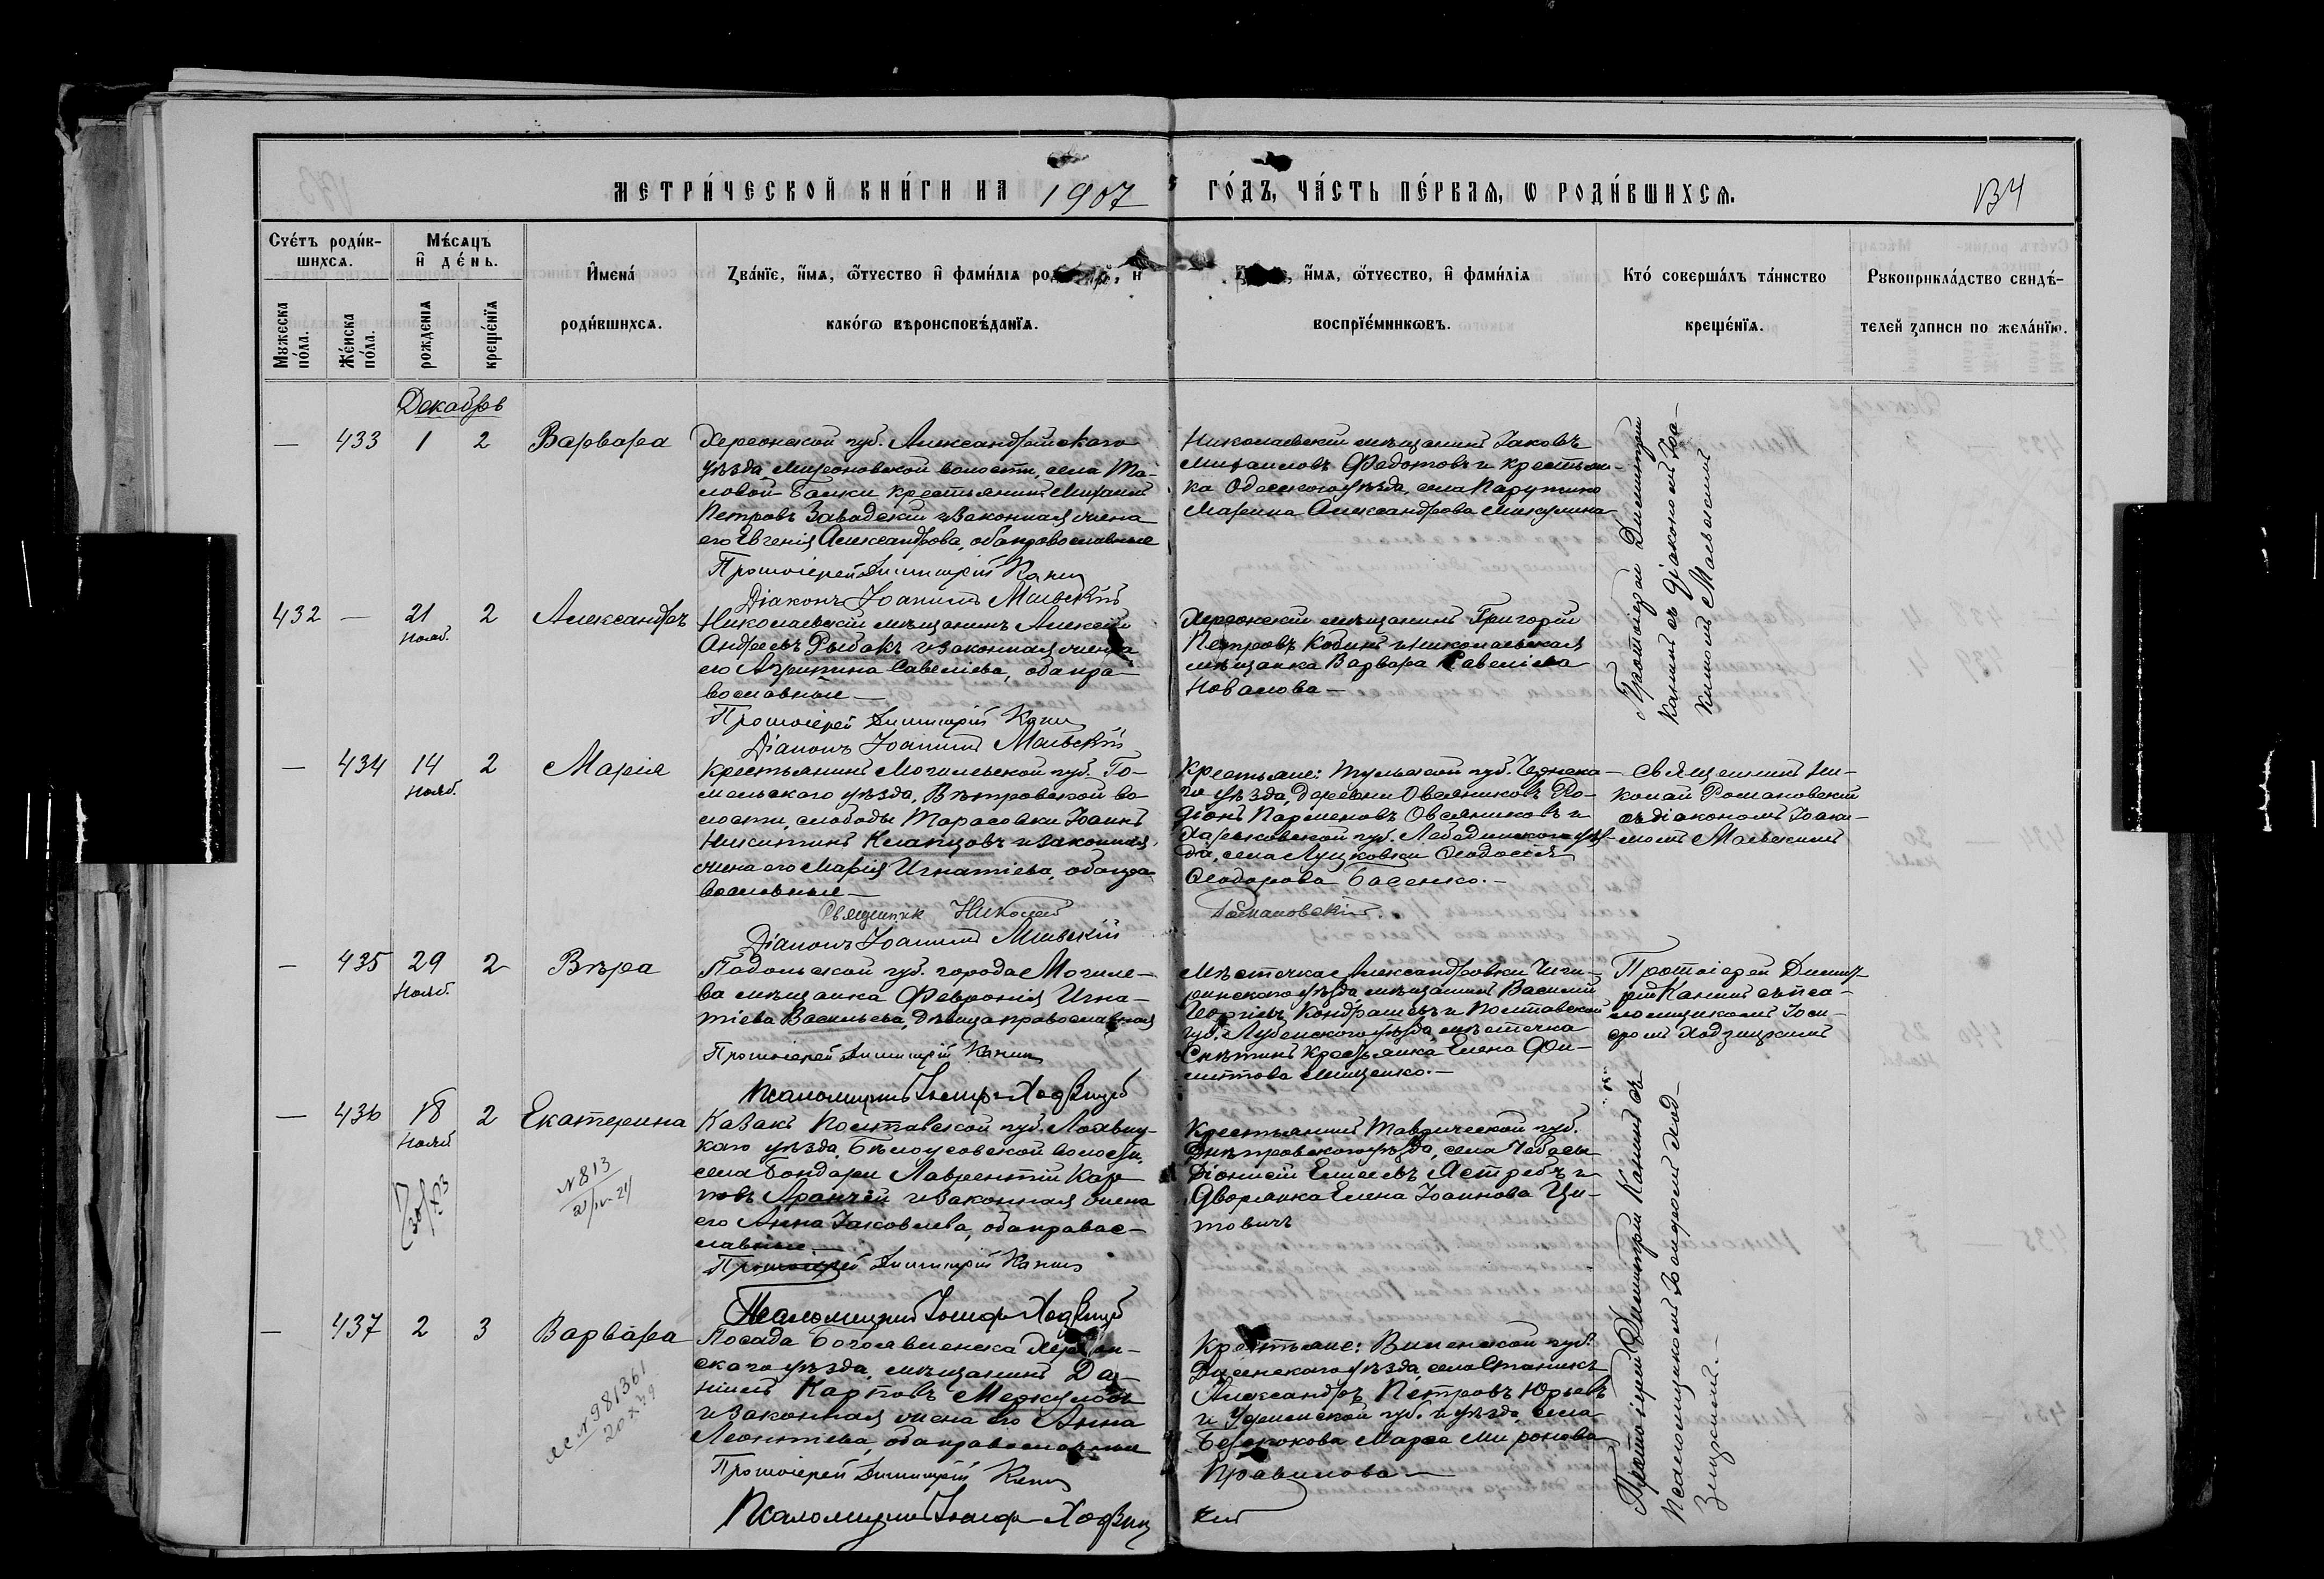 МЕТРИ́ЧЕСКОЙ КНИ́ГИ НА 1907 ГО́ДЪ, ЧА́СТЬ ПЕ́РВАЯ, Ѡ РОДИ́ВШИХСЯ.
134
Счётъ роди́вшихся.
Мѣ́сяцъ и̂ де́нь.
Мꙋжеска по́ла.
Же́нска по́ла.
рожденїѧ
креще́нїѧ
И̂мена́ роди́вшихсѧ.
Ꙁва́нїе, и́мѧ, ѻ҆́тчество и̂ фами́лїѧ и
како́гѡ вѣроисповѣ́данїѧ.
и́мѧ, ѻ҆́тчество, и̂ фами́лїѧ
воспрїе́мникѡвъ.
Кто́ соверша́лъ та́инство
креще́нїѧ.
Рꙋкоприкла́дство свидѣ́-
телей ꙁаписи по жела́нїю.
Декабрь
— 433 1 2 Варвара
Херсонской губ. Александрійскаго
уѣзда, Мироновской волости, села Та-
ловой Балки крестьянинъ Михаилъ
Петровъ Завадскій и законная жена
его Евгенія Александрова, оба православные
Протоіерей Димитрій Канин
Діаконъ Іоакимъ Маевскій
Николаевскій мѣщанинъ Іаковъ
Михаиловъ Федотовъ и крестьян-
ка Одесскаго уѣзда, села Парутино
Марина Александрова Микулина
Протоіерей Димитрій
Канинъ съ діакономъ Іоа-
кимомъ Маевскимъ
432 — 21 Нояб. 2 Александръ
Николаевскій мѣщанинъ Алексій
Андреевъ Рыбакъ и законная жена
его Агриппина Савеліева, оба пра-
вославные —
Протоіерей Димитрій Канин
Діаконъ Іоакимъ Маевскій
Херсонскій мѣщанинъ Григорій
Петровъ Кобинъ и николаевская
мѣщанка Варвара Савеліева
Новалова —
— 434 14 Нояб. 2 Марія
Крестьянинъ Могилевской губ. Го-
мельскаго уѣзда, Вѣтровской во-
лости, слободы Тарасовки Іоаннъ
Никитинъ Клапцовъ и законная
жена его Марія Игнатіева, оба пра-
вославные —
Священник Николай Романовскій.
Діаконъ Іоакимъ Маевскій
Крестьяне: Тульской губ. Чернска-
го уѣзда, деревни Овсянниковъ Ро-
діонъ Парменовъ Овсянниковъ и
Харьковской губ. Лебединскаго уѣз-
да, села Луцковки Ѳеодосія
Ѳеодорова Басенко. —
Священникъ Ни-
колай Романовскій
съ діакономъ Іоаки-
момъ Маевскимъ
— 435 29 Нояб. 2 Вѣра
Подольской губ. города Могиле-
ва мѣщанка Февронія Игна-
тіева Васильева, дѣвица православная
Протоіерей Димитрій Канин
Псаломщикъ Іосиф Ходзицкій
Мѣстечка Александровки Чиги-
ринскаго уѣзда, мѣщанинъ Василій
Георгіевъ Кондрашевъ и Полтавской
губ. Лубенскаго уѣзда, мѣстечка
Снѣтинъ крестьянка Елена Фи-
липпова Мищенко. —
Протоіерей Димит-
рій Канинъ съ пса-
ломщикомъ Іоси-
фомъ Ходзицкимъ
— 436 18 Нояб 2 Екатерина
№ 813
Казакъ Полтавской губ. Лохвиц-
каго уѣзда, Бѣлоусовской волости,
села Бондари Лаврентій Кар-
повъ Аранчей и законная жена
его Анна Іаковлева, оба право-
славные —
Протоіерей Димитрій Канин
Псаломщикъ Іосиф Ходзицкій
Крестьянинъ Таврической губ.
Днѣпровскаго уѣзда, села Чебасы
Діонисій Елисеевъ Ястребъ и
дворянка Елена Іоаннова Ци-
товичъ
Протоіерей Димитрій Канинъ съ
псаломщикомъ Іосифомъ Ход-
зицкимъ. —
— 437 2 3 Варвара
№ 981361
20 X 79
Посада Богоявленска Херсон-
скаго уѣзда, мѣщанинъ Да-
ніилъ Карповъ Меркуловъ
и законная жена его Анна
Леонтіева, оба православные
Протоіерей Димитрій Канин
Псаломщикъ Іосиф Ходзицкій
Крестьяне: Виленской губ.
Дисненскаго уѣзда, села Станикъ
Александръ Петровъ Юрьевъ
и Уфимской губ. и уѣзда, села
Безрокова Марѳа Миронова
Правилова —